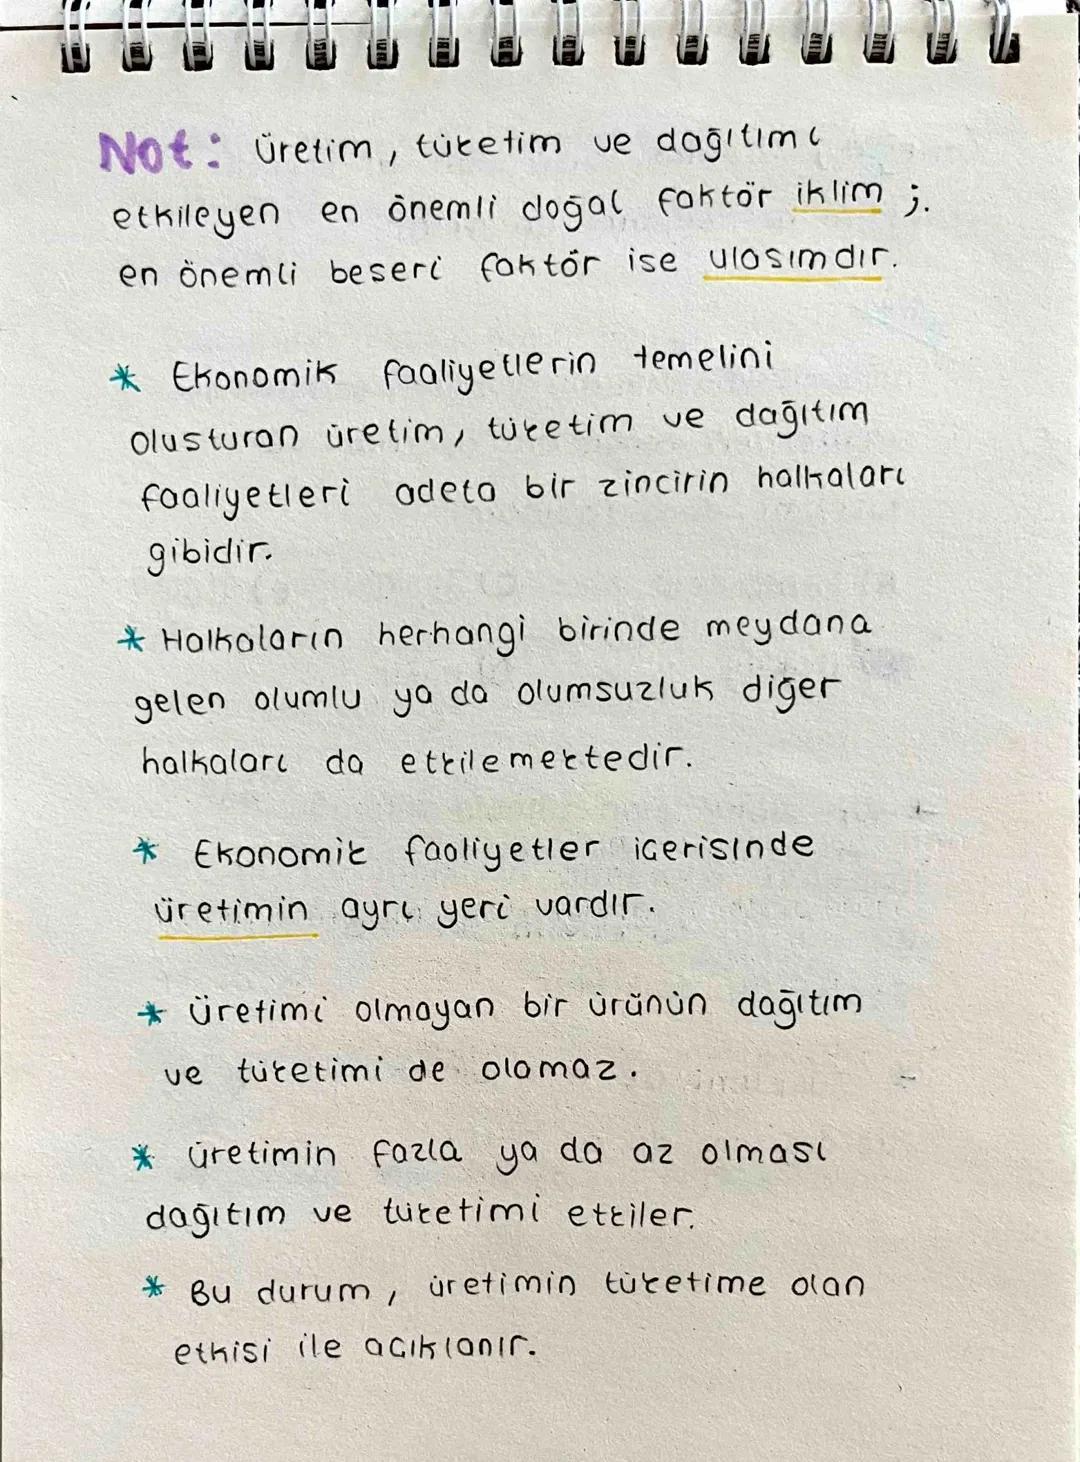 Not: üretim, tüketim ve dağıtımı
etkileyen en önemli doğal faktör iklim ;.
en önemli beseri faktör ise ulasımdır.
* Ekonomik faaliyetlerin temelini
olusturan üretim, tüketim ve dağıtım
faaliyetleri adeta bir zincirin halkaları
gibidir.
* Halkaların herhangi birinde meydana
gelen olumlu ya da olumsuzluk diğer
halkaları da etkilemektedir.
* Ekonomik faaliyetler icerisinde
üretimin ayrı yeri vardır.
* üretimi olmayan bir ürünün dağıtım
ve tüketimi de olamaz.
* üretimin fazla ya da az olması
dağıtım ve tüketimi etkiler.
* Bu durum, üretimin tüketime olan
etkisi ile acıklanır.